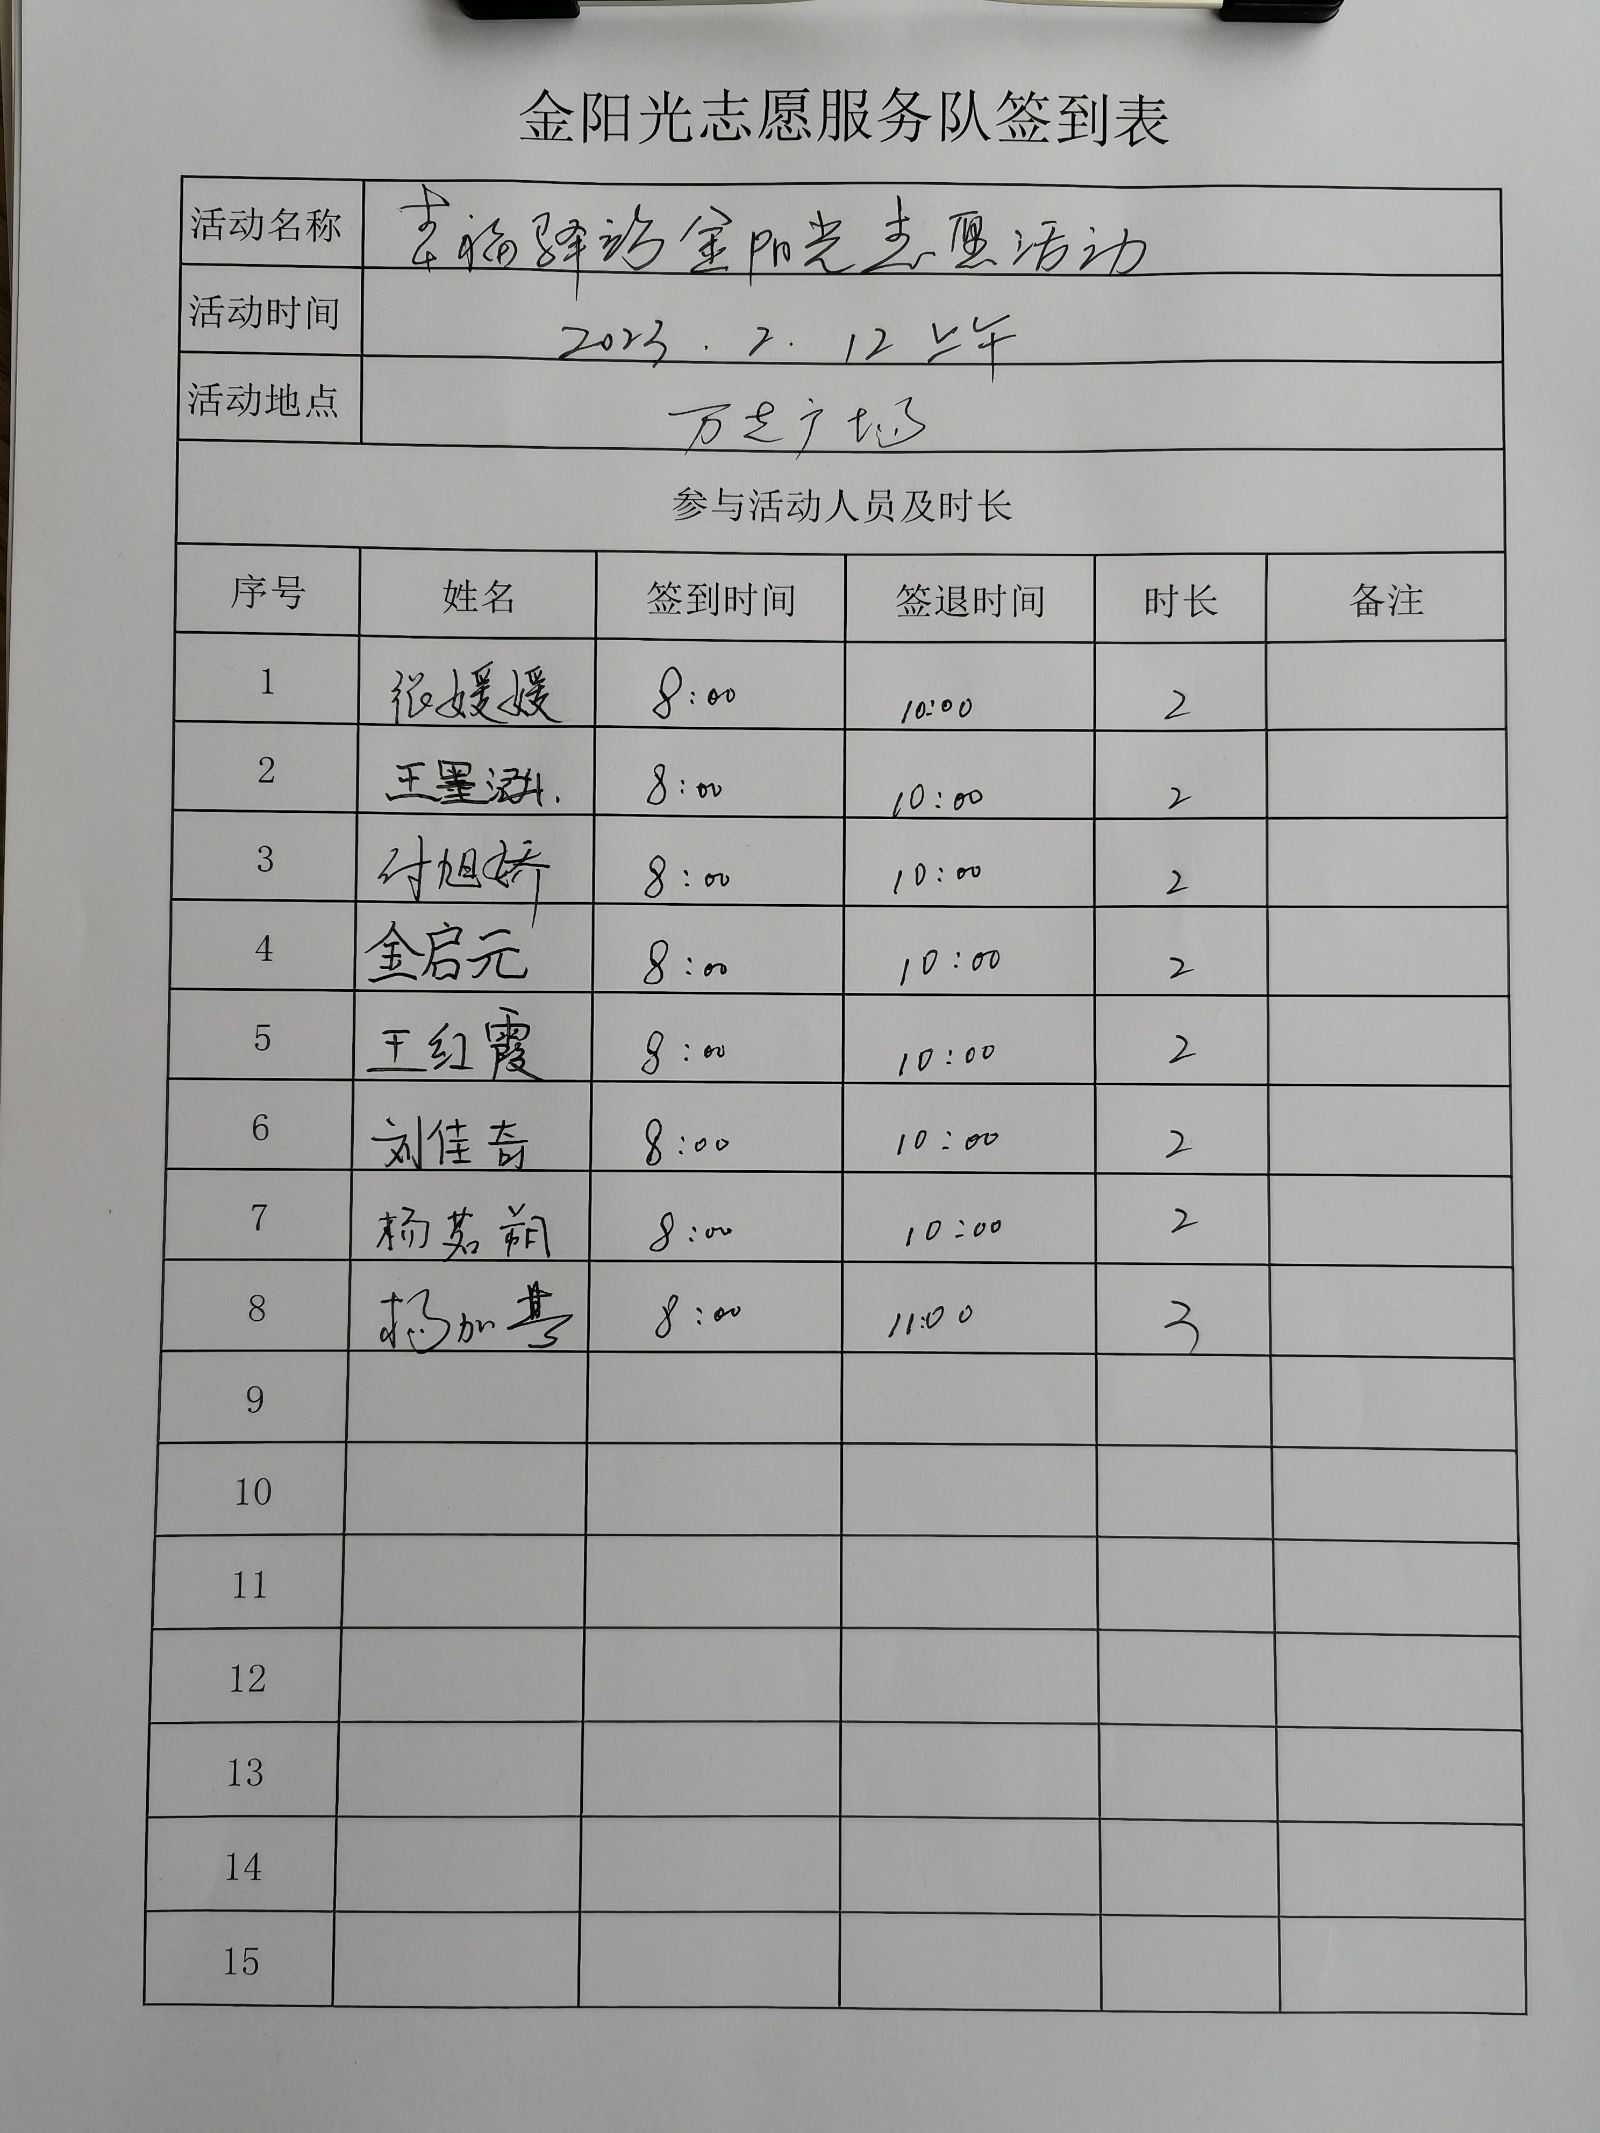 金阳光志愿服务队签到表
活动名称 幸福驿站金阳光志愿活动
活动时间 2023.2.12上午
活动地点 万达广场
参与活动人员及时长
序号 姓名 签到时间 签退时间 时长 备注
1 张媛媛 8:00 10:00 2
2 王墨 8:00 10:00 2
3 付旭娇 8:00 10:00 2
4 金启元 8:00 10:00 2
5 王红霞 8:00 10:00 2
6 刘佳奇 8:00 10:00 2
7 杨茗朔 8:00 10:00 2
8 杨加 8:00 11:00 3
9
10
11
12
13
14
15